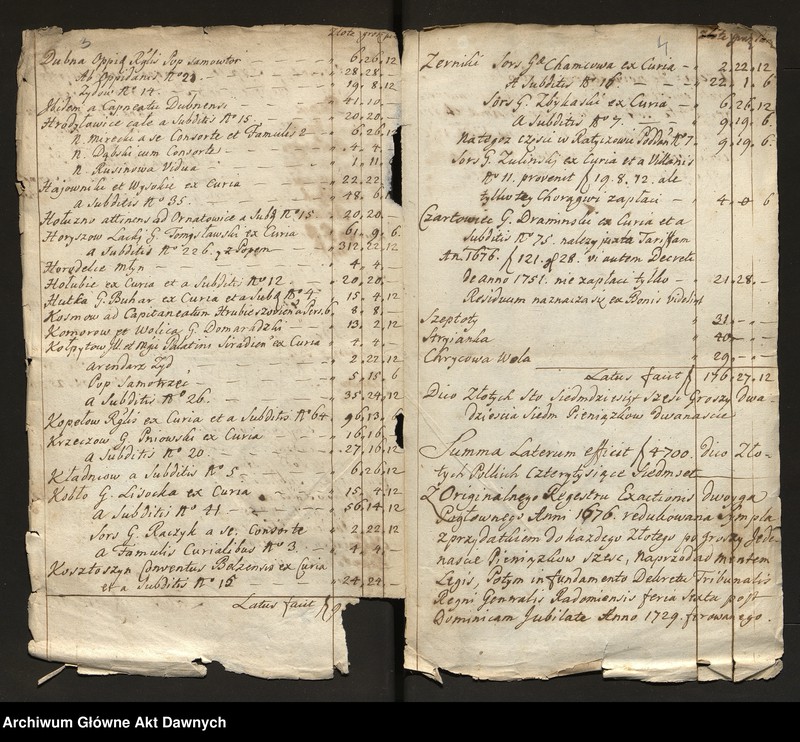 3
Złote groſ. pie.
Dubna Oppid Rglis Pop samowtor — „ 6. 26. 12
Ab Oppidanis No 21 — — „ 28. 28. —
Żydów No 14 — — „ 19. 8. 12
Idem a Capneatu Dubnensi — „ 41. 10. —
Hrodyławice całe a Subditis No 15 — „ 20. 20. —
N. Mirecki a se Consorte et Famulis 2 — „ 6. 26. 12
N. Dąbski cum Consorte — „ 4. 4. —
N. Rusinowa Vidua — „ 1. 11.
Hajowniki et Wysokie ex Curia — „ 22. 22. —
a Subditis No 35. — — „ 48. 6.
Hołuzno attinens ad Ornatowice a Subd No 15 „ 20. 20. —
Horyszow Lacki G. Tomysławski ex Curia „ 61. 9. 6.
a Subditis No 226. z Popem — „ 312. 22. 12
Horodelce Młyn — — „ 4. 4. —
Hołubie ex Curia et a Subditis No 12 — „ 20. 20. —
Hutka G. Buhar ex Curia et a Subd No 4 — „ 15. 4. 12
Kosmow ad Capitaneatum Hrubieszovien „ 8. 8. —
Komorow et Wolica G. Domaradzki — „ 13. 2. 12
Kołpytow Ill et Mgci Palatini Siradien ex Curia „ 4. 4. —
Arendarz Żyd — — „ 2. 22. 12
Pop Samotrzeć — — „ 5. 15. 6
a Subditis No 26. — — „ 35. 24. 12
Kopołow Rglis ex Curia et a Subditis No 64 „ 96. 13. 6
Krzeczow G. Pniowski ex Curia — „ 16. 16. —
a Subditis No 20 — — „ 27. 16. 12
Kładniow a Subditis No 5 — — „ 6. 26. 12
Kobło G. Lisocka ex Curia — „ 15. 4. 12
a Subditis No 41 — — „ 56. 14. 12
Sors G. Raczyk a se. Consorte „ 2. 22. 12
a Famulis Curialibus No 3 — „ 4. 4. —
Kosztoszyn Conventus Belzensis ex Curia
et a Subditis No 15 — „ 24. 24. —
Latus facit
4
Złote groſ.
Zerniki Sors Ga Chamcowa ex Curia — „ 2. 22. 12
A Subditis No 16 — „ 22. 1. 6
Sors G. Zbykaski ex Curia — „ 6. 26. 12
A Subditis No 7. — „ 9. 19. 6
Na tegoz częsci w Ratyczowie Poddan No 7. „ 9. 19. 6.
Sors G. Zulinski ex Curia et a Villanis
No 11. provenit f 19. 8. 12. ale
tylko tey Chorągwi zapłaci — „ 4. 0 6
Czartowice G. Draminski ex Curia et a
Subditis No 75. nalezy juxta Tariffam
An. 1676. f 121. g 28. vi autem Decreti
de anno 1751. nie zapłaci tylko — „ 21. 28. —
Residuum naznacza się ex Bonis videlict
Szeptoty „ 31 — —
Stryianka „ 40 — —
Chrycowa Wola „ 29 — —
Latus facit f 176. 27. 12
Dico Złotych Sto Siedmdziesiąt Szesc Groszy Dwa-
dziescia Siedm Pieniązkow Dwanascie
Summa Laterum efficit f 4700. Dico Zło-
tych Polskich Czterytysiące Siedmset
Z Originalnego Regestru Exactionis Dwoyga
Pogłownego Anni 1676. redukowana Simpla
z przydatkiem do każdego Złotego po groszy Jede-
nascie Pieniązkow szesc, naprzod ad mentem
Legis, Potym in fundamento Decretu Tribunalis
Regni Gnralis Radomiensis feria 4ta post
Dominicam Jubilate Anno 1729. ferowanego.
Archiwum Główne Akt Dawnych